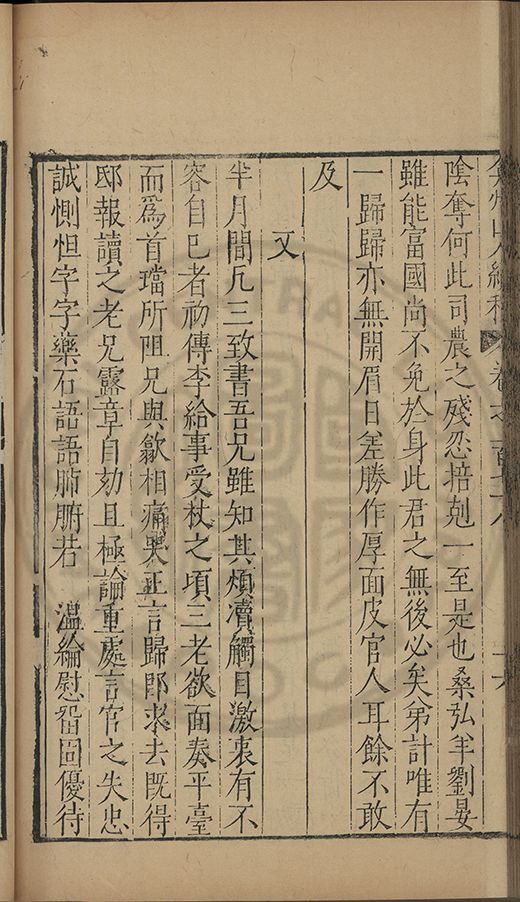 弇州山人續稿 卷之一百七十八 十六
陰奪何此司農之殘忍掊剋一至是也桑弘羊劉晏
雖能富國尚不免於身此君之無後必矣弟計唯有
一歸歸亦無開眉日差勝作厚面皮官人耳餘不敢
及
又
半月間凡三致書吾兄雖知其煩瀆觸目激衷有不
容自已者初傳李給事受杖之頃三老欲面奏平臺
而爲首璫所阻兄與歙相痛哭正言歸郎求去既得
邸報讀之老兄露章自劾且極論重處言官之失忠
誠惻怛字字藥石語語肺腑若 溫綸慰畱固優待